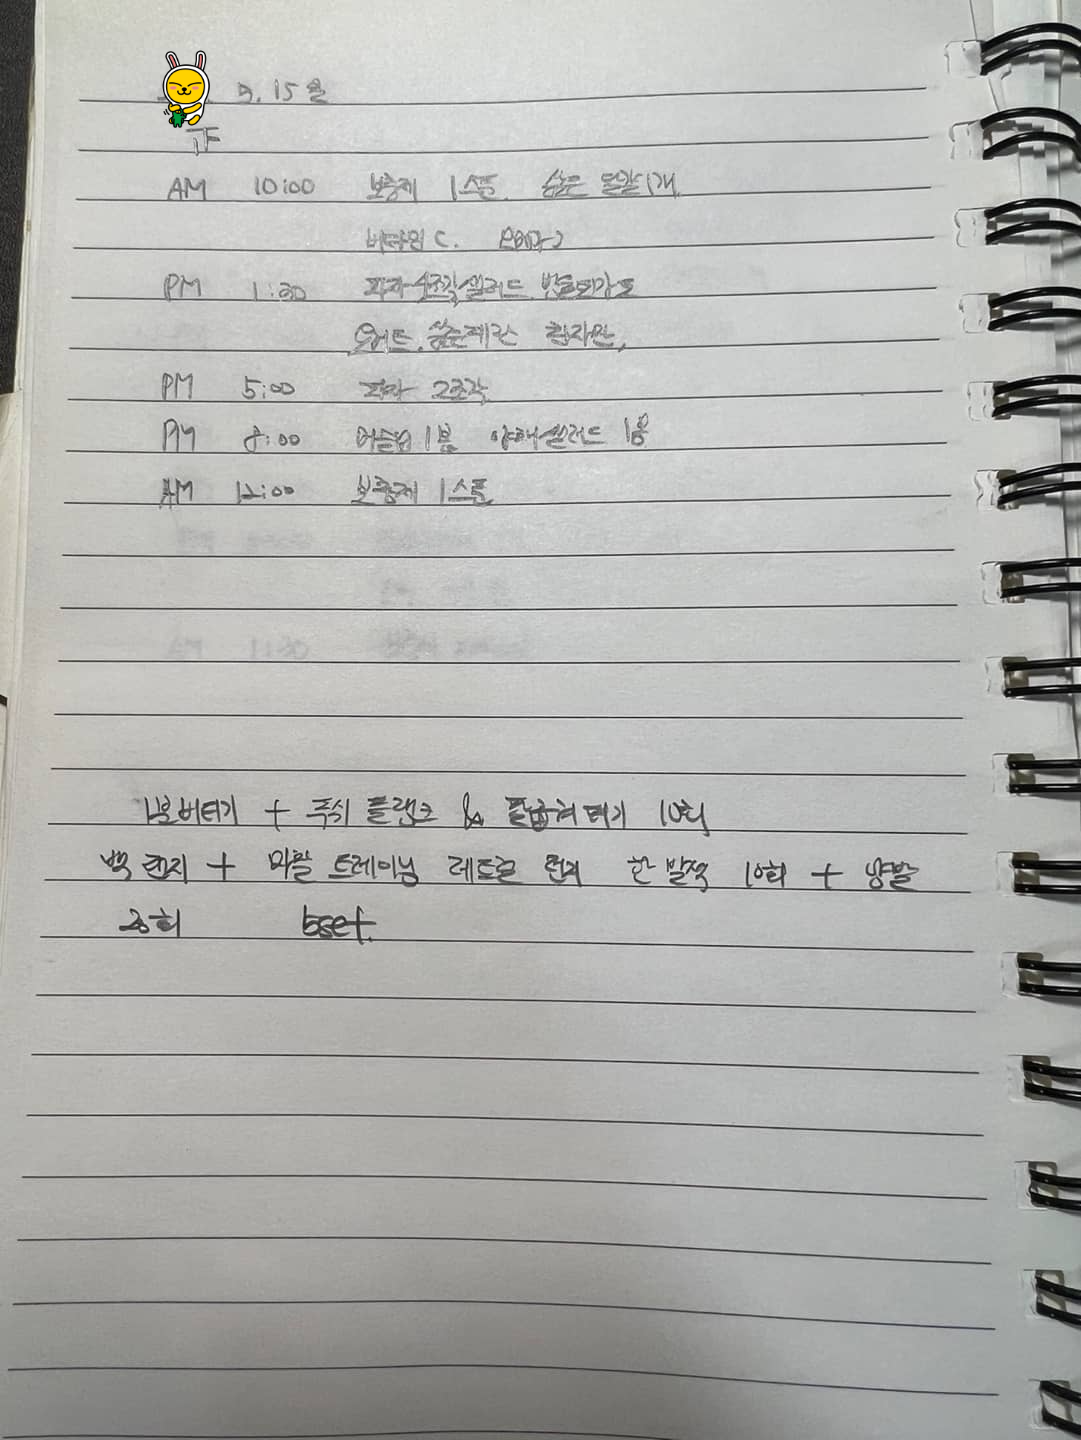 5. 15 월
AM 10:00 보충제 1스푼. 삶은 달걀 1개
비타민 C. 오메가3
PM 1:30 피자 4조각, 샐러드, 반트
요거트, 삶은계란 흰자만,
PM 5:00 피자 2조각
PM 8:00 1봉 야채샐러드 1봉
AM 12:00 보충제 1스푼
1분버티기 + 푸쉬 플랭크 & 팔굽혀펴기 10회
백 런지 + 트레이닝 레드콘 런지 한 발씩 10회 + 양발
20회 5set.